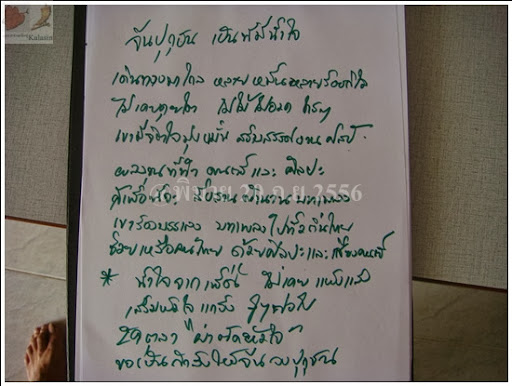 Kalasin
จีนปุถุชน เป็นพี่มีน้ำใจ
เดินทางมาไกล หลายหมื่นหลายร้อยกิโล
ไม่เคยคุยโว ไม่โม้ ไม่อวด ใครๆ
เขามีจิตใจมุ่งมั่น สร้างสรรค์งานศิลป์
ผลงานที่ทำ ดนตรี และ ศิลปะ
สืบสาน ตำนาน บทเพลง
ก.ย. 2556
เขาร้องบรรเลง บทเพลงไปทั่วถิ่นไทย
ช่วยเหลือคนไทย ด้วยศิลปะและเสียงดนตรี
* น้ำใจจากพี่จีน ไม่เคย แห้งแล้ง
เสริมหัวใจ แกร่ง สู้ๆต่อไป
29 ตุลา "ผ่าตัดหัวใจ"
ขอเป็นกำลังใจให้จีน วงปุถุชน